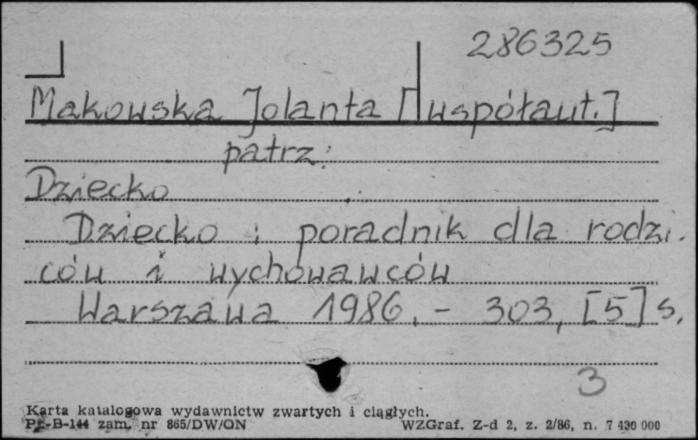 286325
Makowska Jolanta [współaut.]
patrz:
Dziecko
Dziecko : poradnik dla rodzi-
ców i wychowawców
Warszawa 1986. - 303, [5] s.
3
Karta katalogowa wydawnictw zwartych i ciągłych.
Pu-B-144 zam. nr 865/DW/ON WZGraf. Z-d 2, z. 2/86, n. 7 430 000